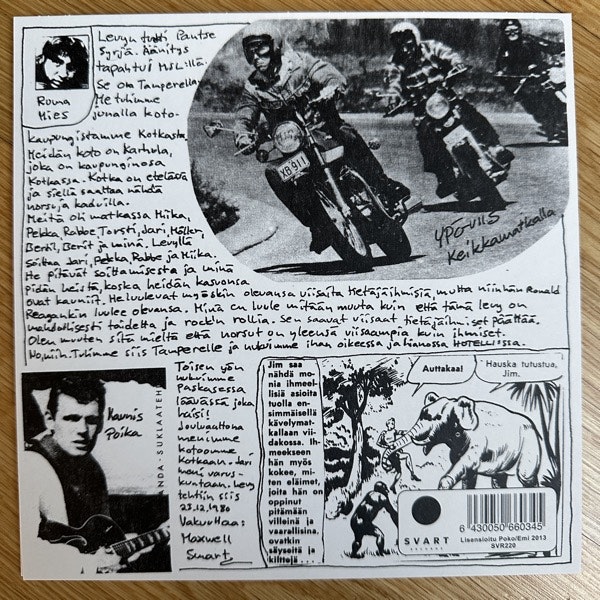 Levyn tutti Pantse
Syrjä. Äänitys
tapahtui MSL:llä.
Se on Tampereella.
Me tulimme
junalla koto-
Ruma
Mies
kaupungistamme Kotkasta.
Meidän koto on Karhula,
joka on kaupunginosa
Kotkassa. Kotka on etelässä
ja siellä saattaa nähdä
norsuja kaduilla.
Meitä oli matkassa Miika,
Pekka, Robbe, Torsti, Jari, Möller,
Bertil, Berit ja minä. Levyllä
soittaa Jari, Pekka, Robbe ja Miika.
He pitävät soittamisesta ja minä
pidän heistä, koska heidän kasvonsa
ovat kauniit. He luulevat myöskin olevansa viisaita tietäjäihmisiä, mutta niinhän Ronald
Reagankin luulee olevansa. Minä en luule mitään muuta kuin että tämä levy on
mahdollisesti taidetta ja rock'n rollia. Sen saavat viisaat tietäjäihmiset päättää.
Olen muuten sitä mieltä että norsut on yleensä viisaampia kuin ihmiset.
No, niih. Tulimme siis Tampereelle ja nukuimme ihan oikeessa ja hianossa HOTELLISSA.
XB 911
YPÖ-VIIS
Keikkamatkalla
Kaunis
Poika
NDA-SUKLAATEH
Toisen yön
nukuimme
Paskasessa
läävässä joka
haisi!
Jouluaattona
menimme
kotoomme
Kotkaan. Jari
meni varus-
kuntaan. Levy
tehtiin siis
23.12.1980
Vakuuttaa:
Maxwell
Smart
Jim saa
nähdä mo-
nia ihmeel-
lisiä asioita
tuolla en-
simmäisellä
kävelymat-
kallaan vii-
dakossa. Ih-
meekseen
hän myös
kokee, mi-
ten eläimet,
joita hän on
oppinut
pitämään
villeinä ja
vaarallisina,
ovatkin
säyseitä ja
kilttejä...
Auttakaa!
Hauska tutustua,
Jim.
SVART
RECORDS
6 430050 660345
Lisensioitu Poko/Emi 2013
SVR220